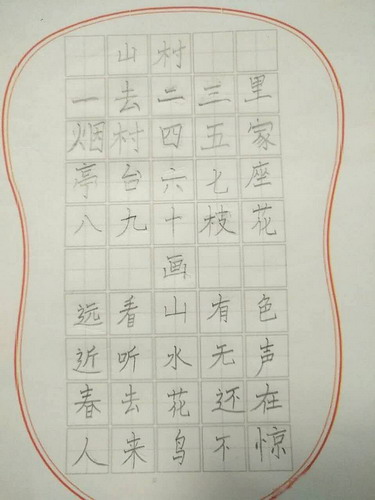 山村
一去二三里
烟村四五家
亭台六七座
八九十枝花
画
远看山有色
近听水无声
春去花还在
人来鸟不惊